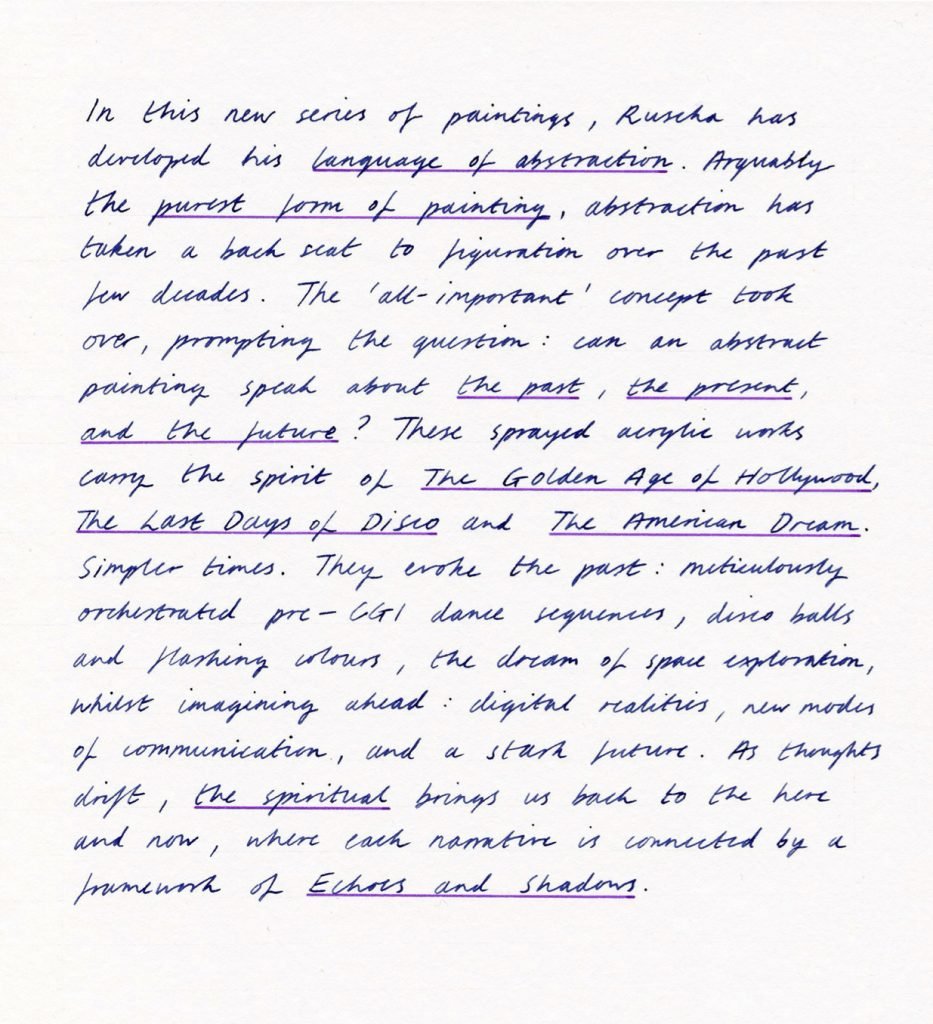 In this new series of paintings, Ruscha has
developed his language of abstraction. Arguably
the purest form of painting, abstraction has
taken a back seat to figuration over the past
few decades. The 'all-important' concept took
over, prompting the question: can an abstract
painting speak about the past, the present,
and the future? These sprayed acrylic works
carry the spirit of The Golden Age of Hollywood,
The Last Days of Disco and The American Dream.
Simpler times. They evoke the past: meticulously
orchestrated pre-CGI dance sequences, disco balls
and flashing colours, the dream of space exploration,
whilst imagining ahead: digital realities, new modes
of communication, and a stark future. As thoughts
drift, the spiritual brings us back to the here
and now, where each narrative is connected by a
framework of Echoes and Shadows.